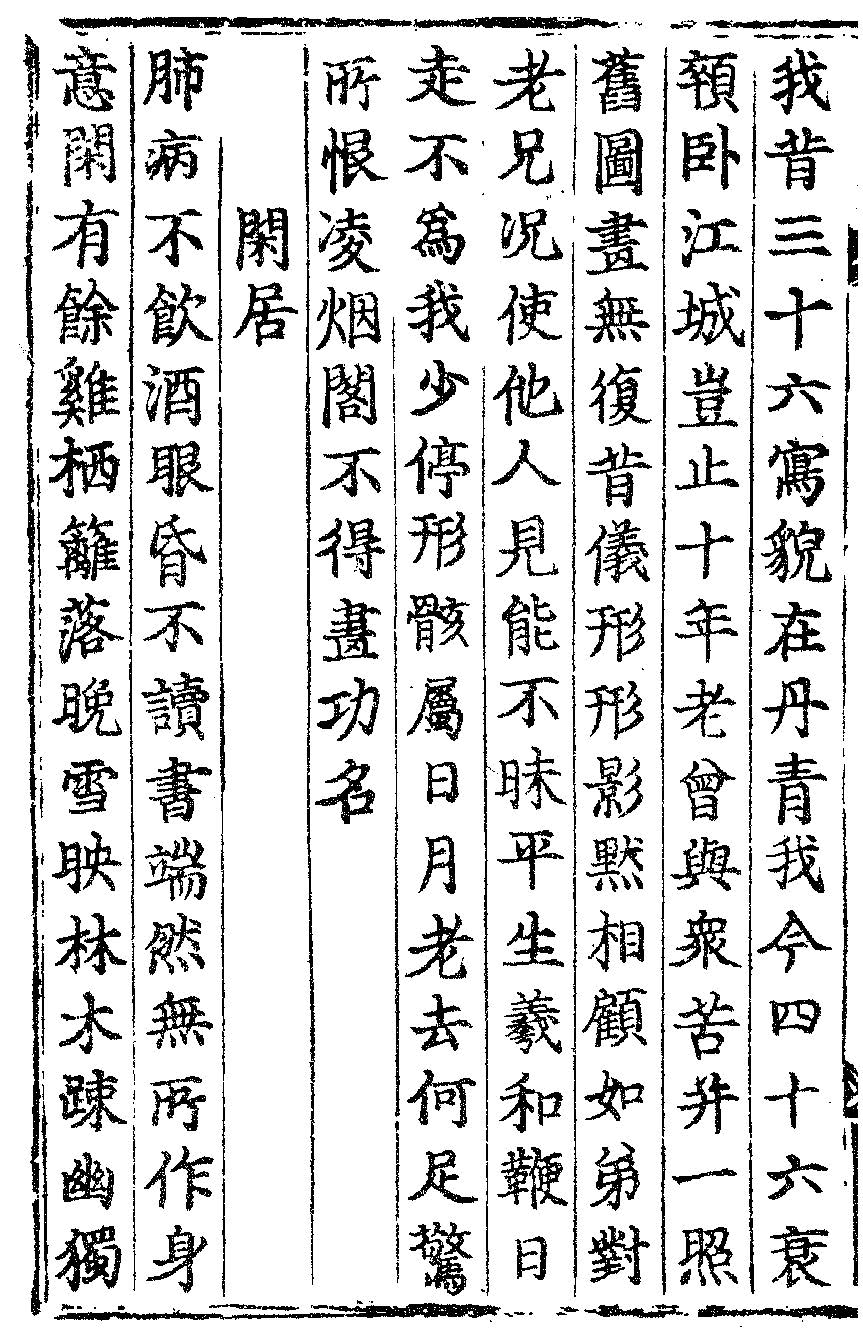 我昔三十六寫貌在丹青我今四十六衰
顇卧江城豈止十年老曾與衆苦并一照
舊圖畫無復昔儀形形影黙相顧如弟對
老兄况使他人見能不昧平生羲和鞭日
走不為我少停形骸屬日月老去何足驚
所恨凌烟閣不得畫功名
閑居
肺病不飲酒眼昏不讀書端然無所作身
意閑有餘雞栖籬落晚雪映林木踈幽獨